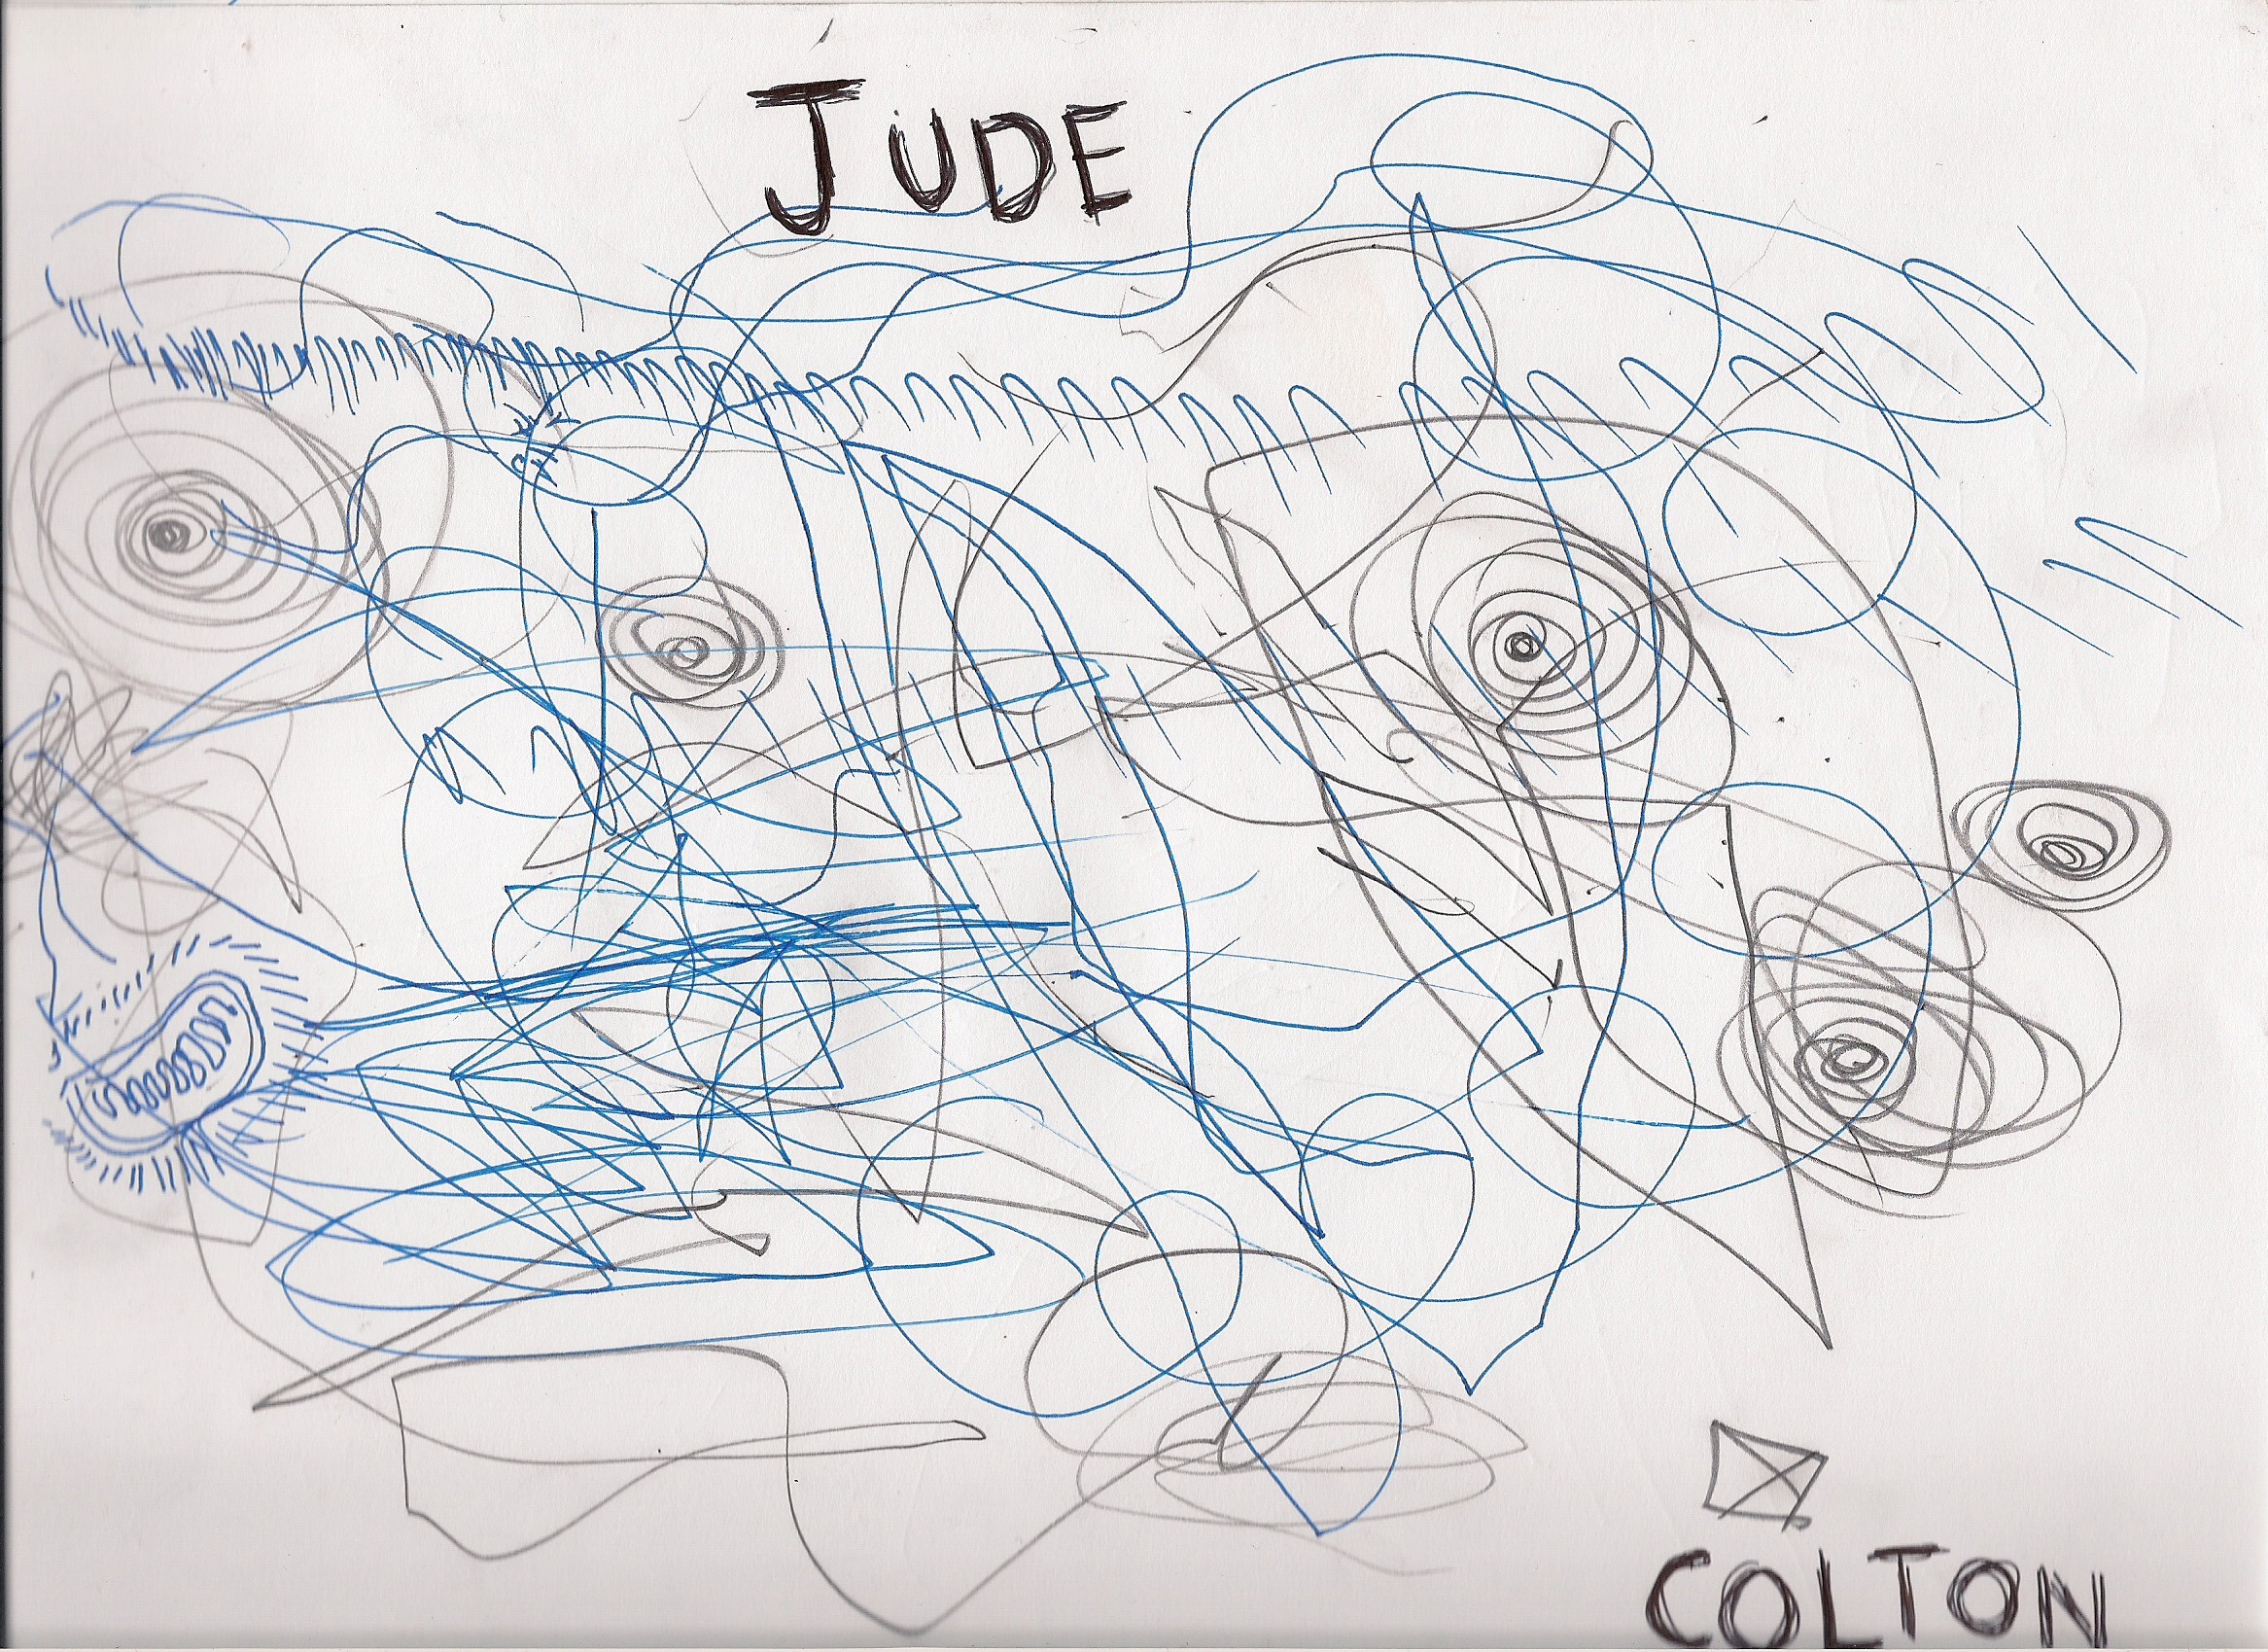 JUDE
COLTON